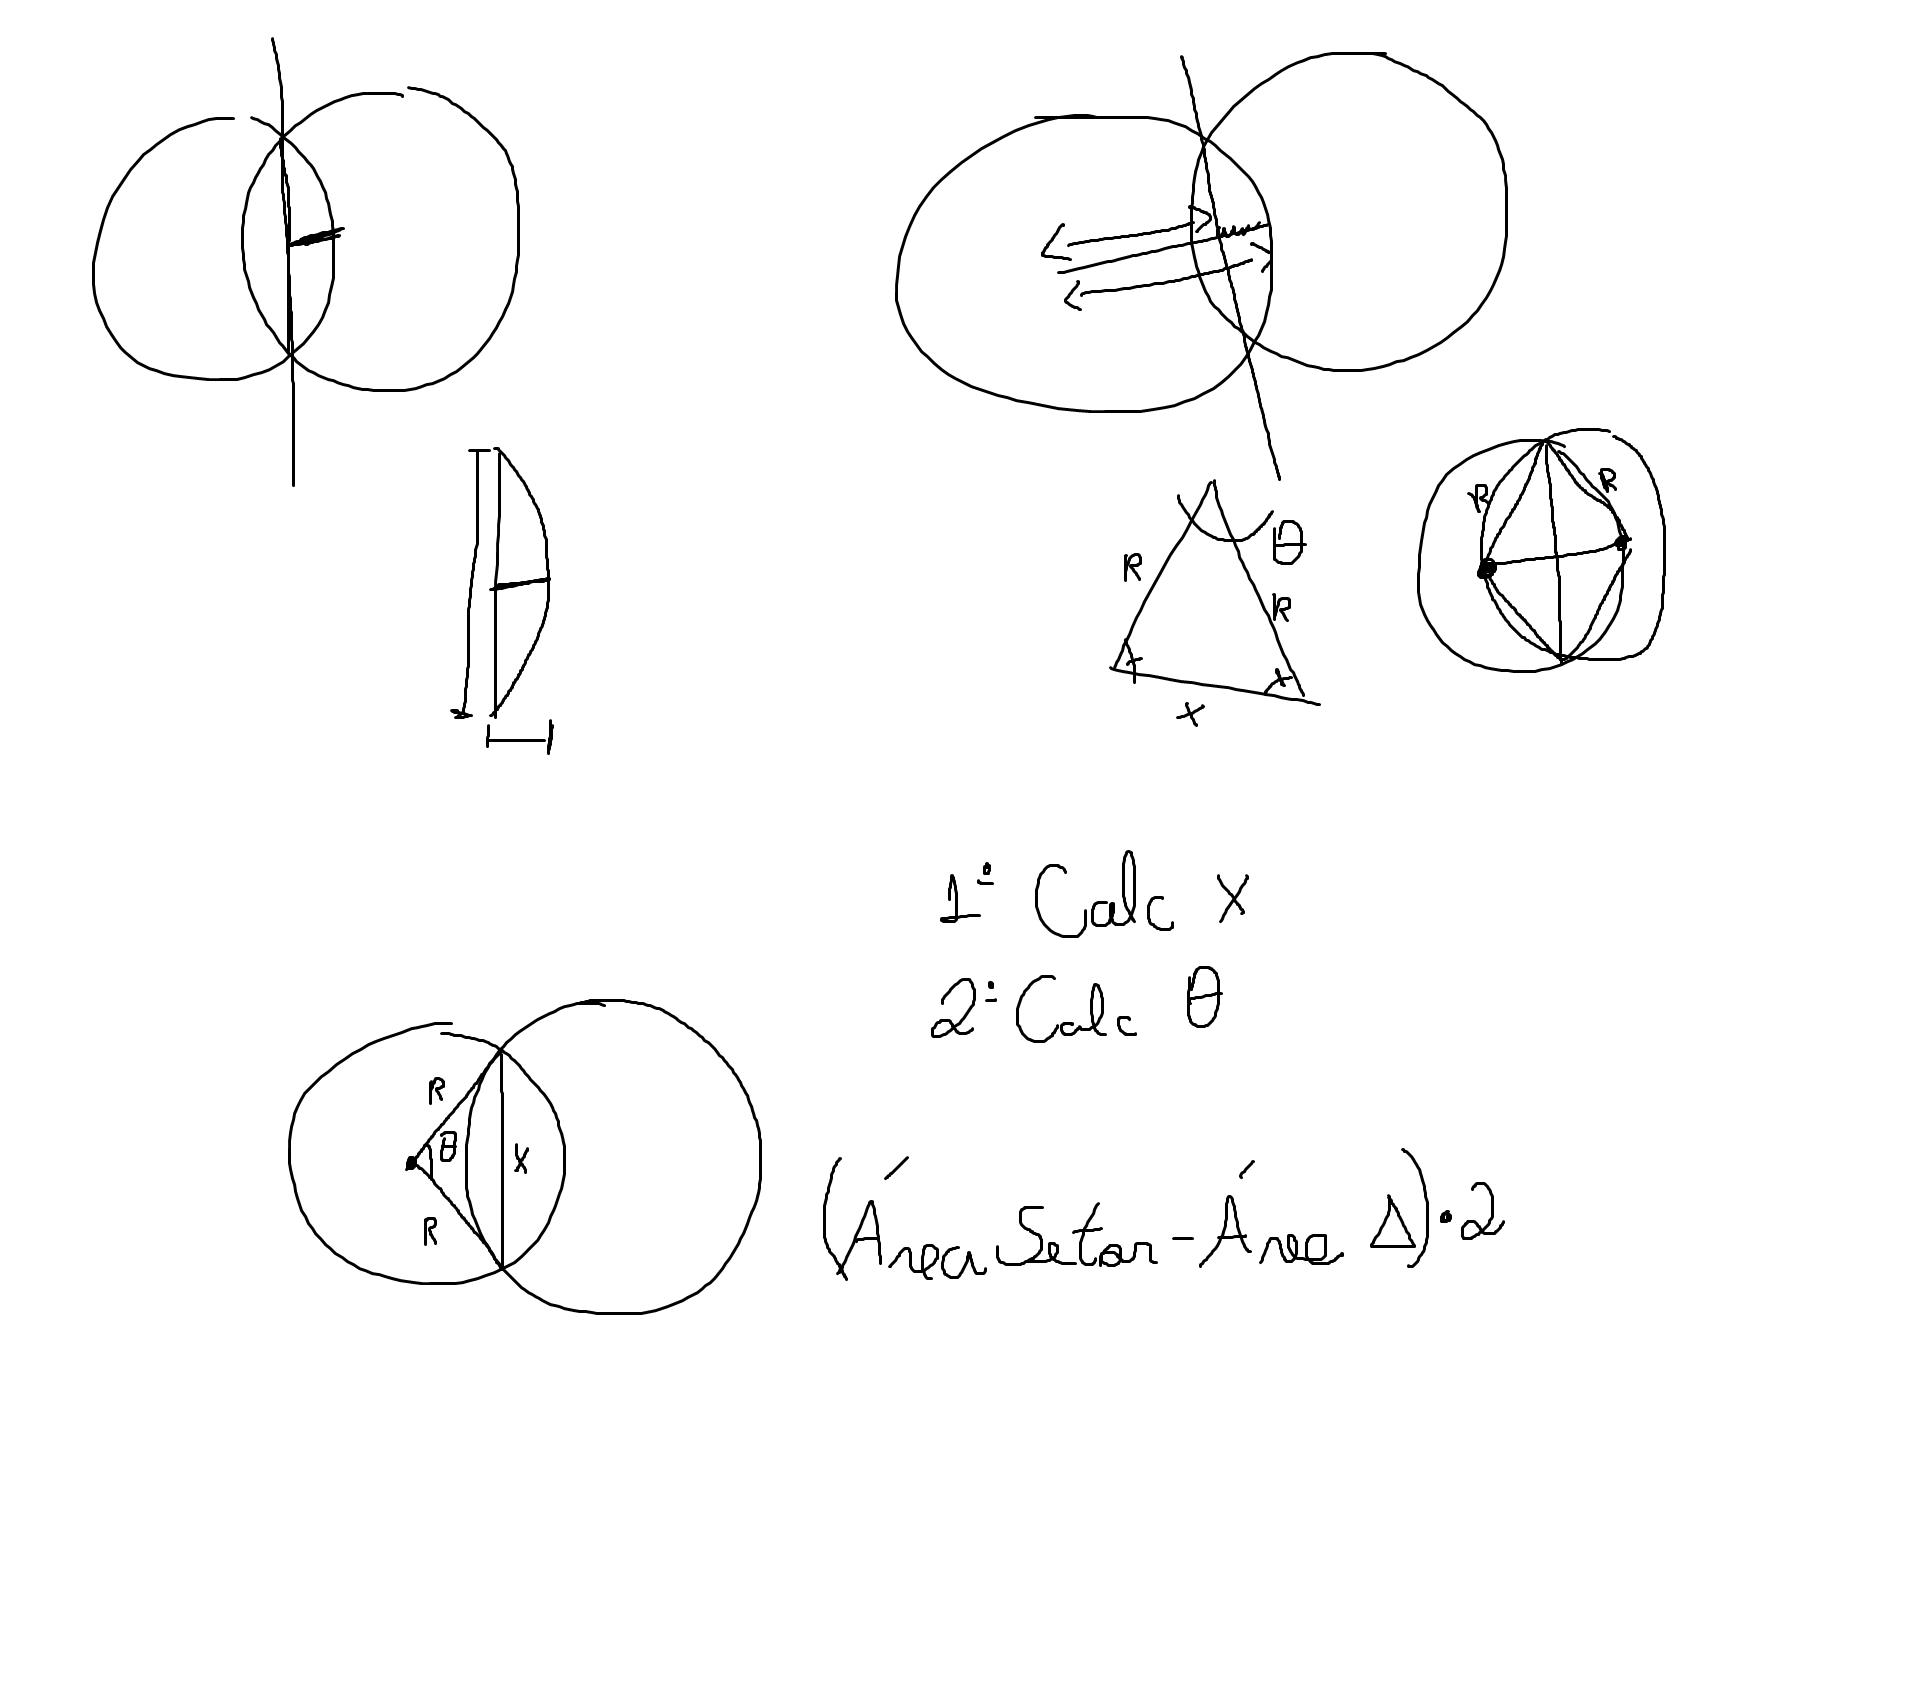 R
R
R
θ
R
x
x
x
1º Calc x
2º Calc θ
R
θ
x
R
(Área Setor - Área Δ) • 2